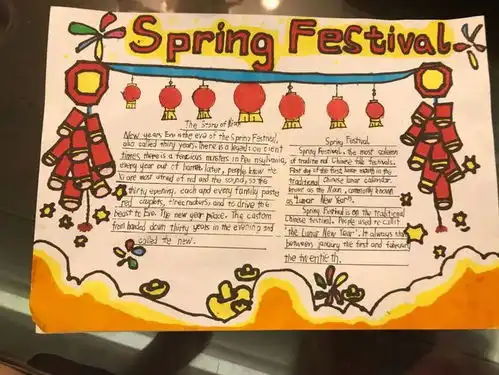 Spring Festival
The Story of Nian
New years Eve is the eve of the Spring Festival,
also called thirty years. There is a legend: on cient
times there is a ferocious monsters in
every year out of harm. Later, people know the
most afraid of red and the sound, so the
thirty evening, each and every family paste
red couplets, firecrackers, and to drive the
beast to live. The new year peace. The custom
from handed down thirty years in the evening and
called the new.
Spring Festival
Spring Festival, the most solemn
of traditional Chinese folk festivals.
First day of the first lunar month in the
traditional Chinese lunar calendar,
know as the Nian, commonly known
as "Lunar New Year".
Spring Festival is on the traditional
Chinese festival. People used to call it
"the Lunar New Year". It always
between january the first and february
the twentieth.